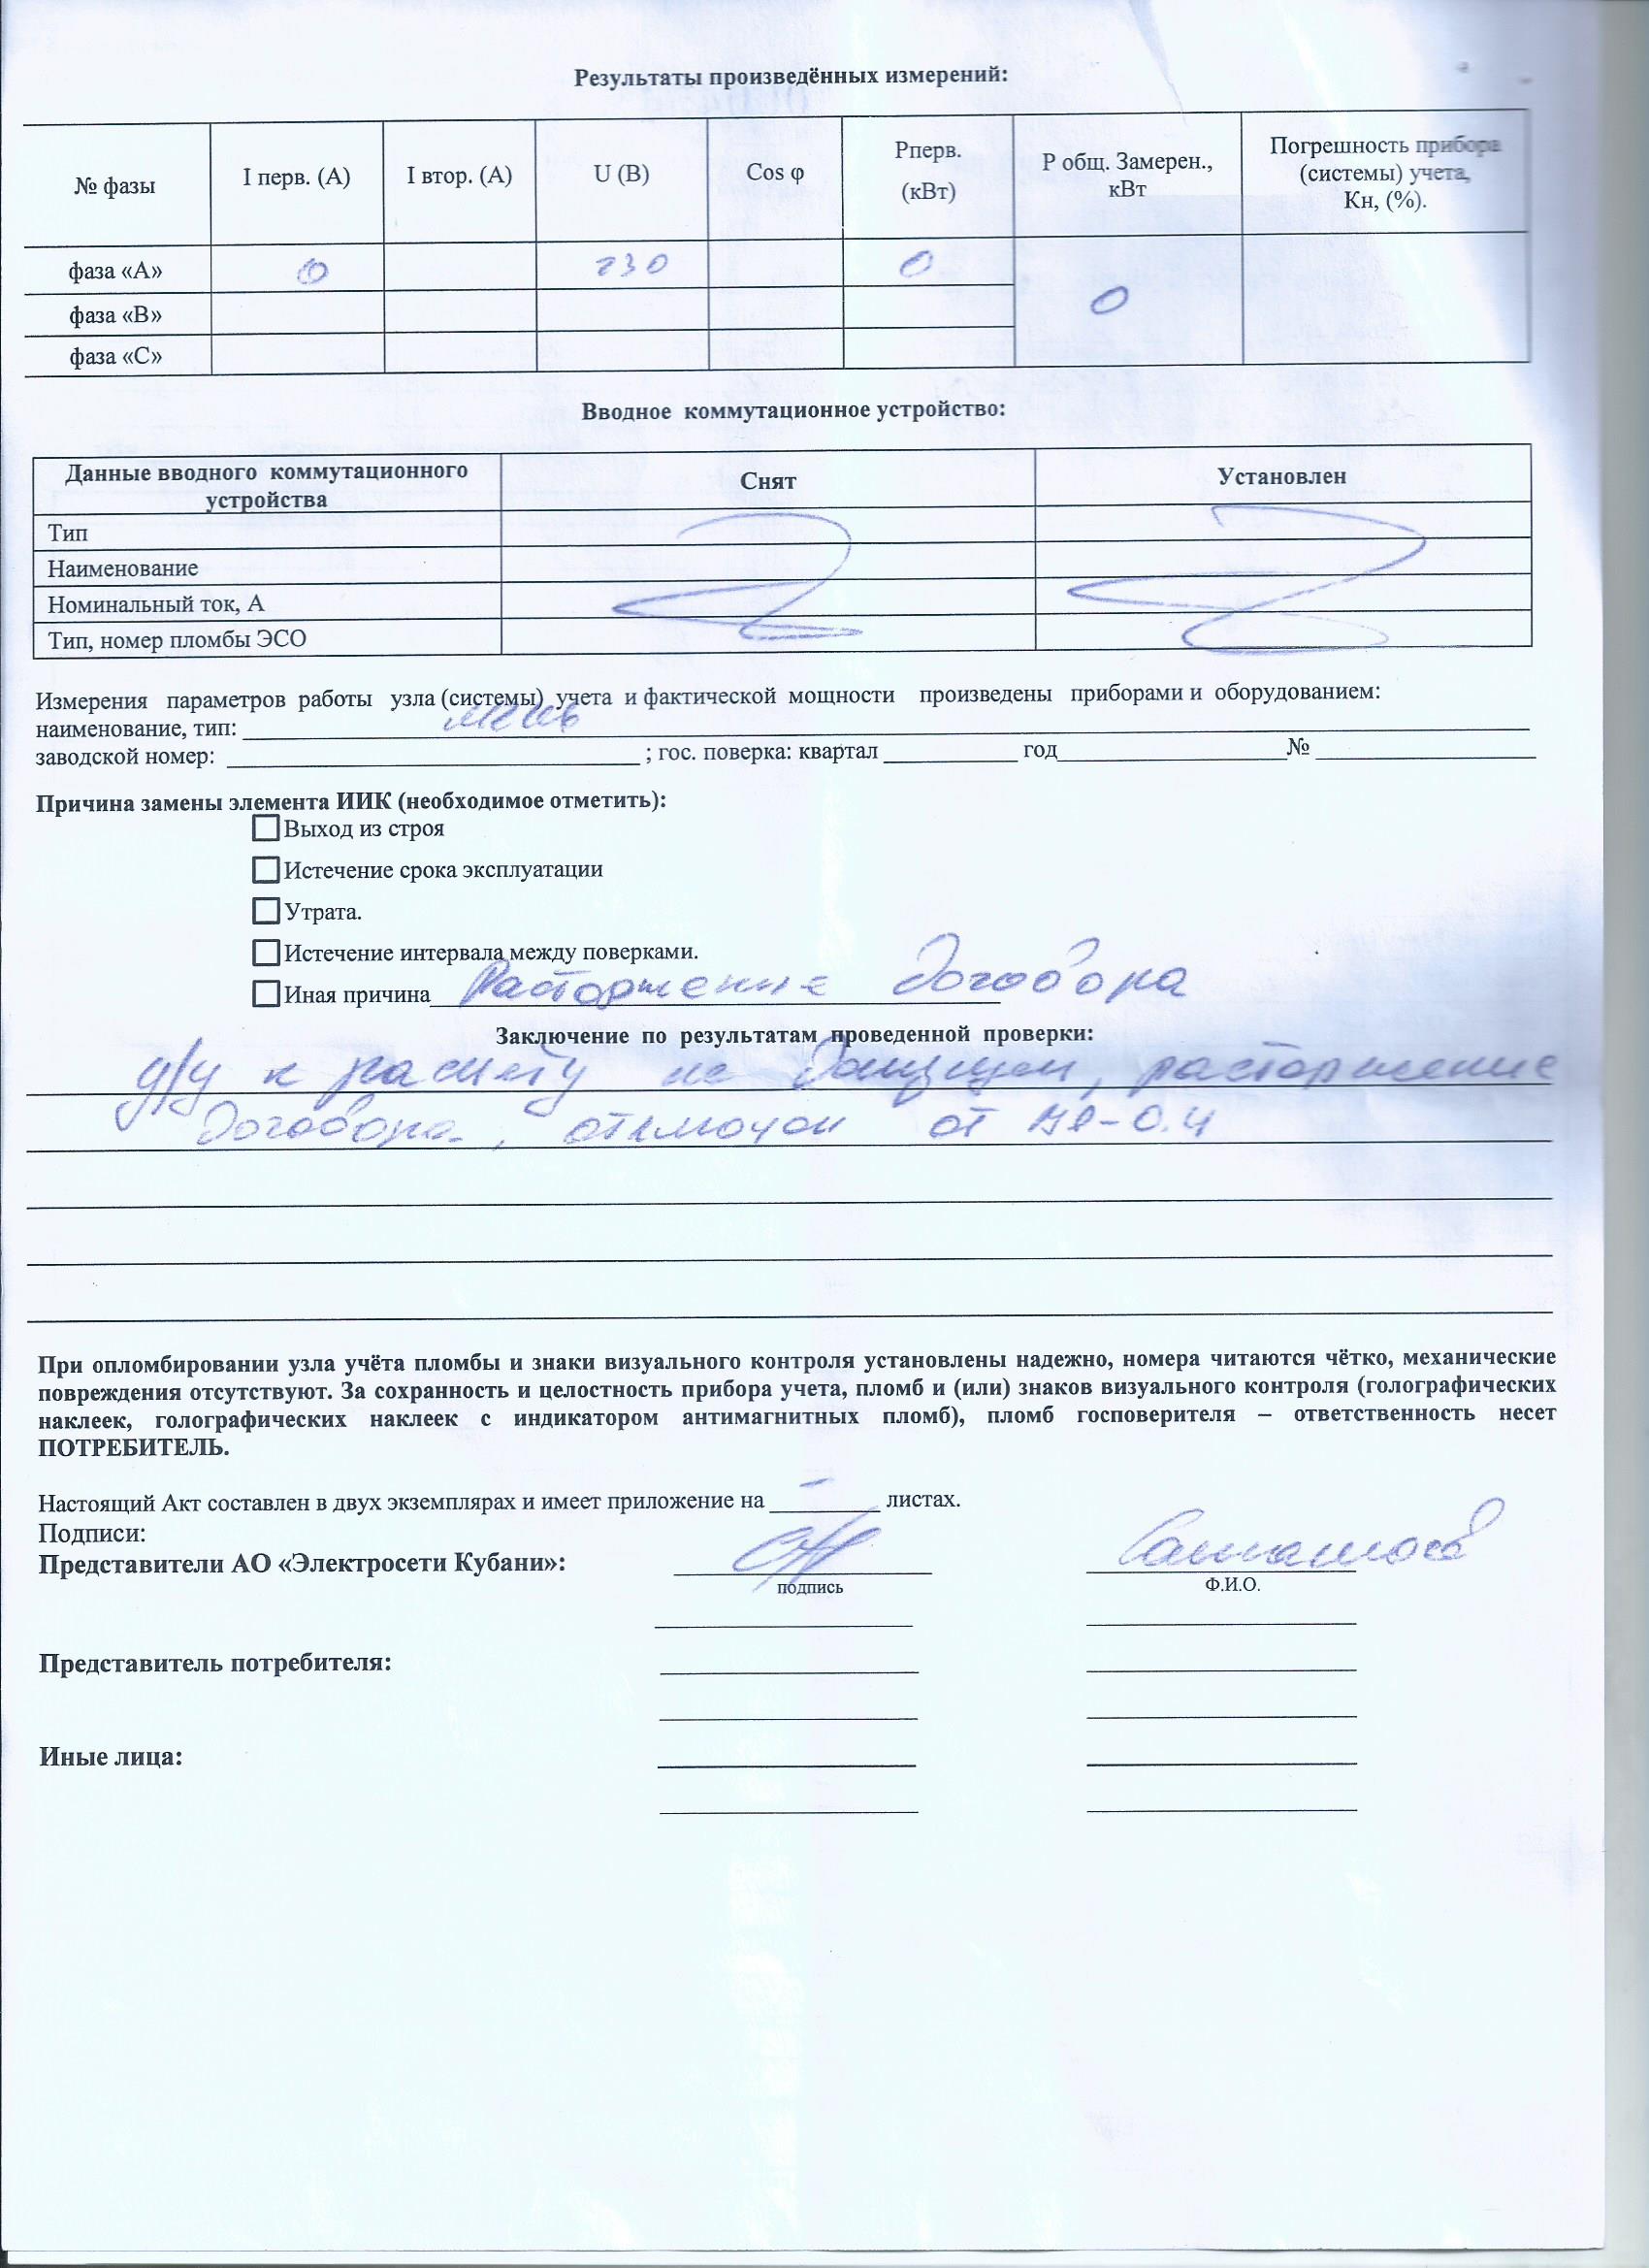 Результаты произведённых измерений:
№ фазы I перв. (А) I втор. (А) U (В) Cos φ Рперв. (кВт) Р общ. Замерен., кВт Погрешность прибора (системы) учета, Кн, (%).
фаза «А» 0 230 0 0
фаза «В»
фаза «С»
Вводное коммутационное устройство:
Данные вводного коммутационного устройства Снят Установлен
Тип
Наименование
Номинальный ток, А
Тип, номер пломбы ЭСО
Измерения параметров работы узла (системы) учета и фактической мощности произведены приборами и оборудованием:
наименование, тип:
заводской номер: ; гос. поверка: квартал год №
Причина замены элемента ИИК (необходимое отметить):
Выход из строя
Истечение срока эксплуатации
Утрата.
Истечение интервала между поверками.
Иная причина Расторжение договора
Заключение по результатам проведенной проверки:
у/у к расчету не допущен, расторжение
договора, отключен от
При опломбировании узла учёта пломбы и знаки визуального контроля установлены надежно, номера читаются чётко, механические
повреждения отсутствуют. За сохранность и целостность прибора учета, пломб и (или) знаков визуального контроля (голографических
наклеек, голографических наклеек с индикатором антимагнитных пломб), пломб госповерителя – ответственность несет
ПОТРЕБИТЕЛЬ.
Настоящий Акт составлен в двух экземплярах и имеет приложение на – листах.
Подписи:
Представители АО «Электросети Кубани»:
подпись Ф.И.О.
Представитель потребителя:
Иные лица: